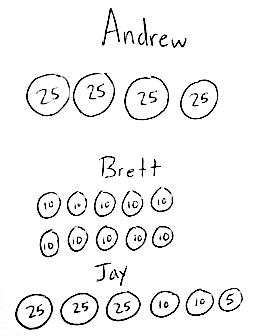 Andrew
25 25 25 25
Brett
10 10 10 10 10
10 10 10 10 10
Jay
25 25 25 10 10 5